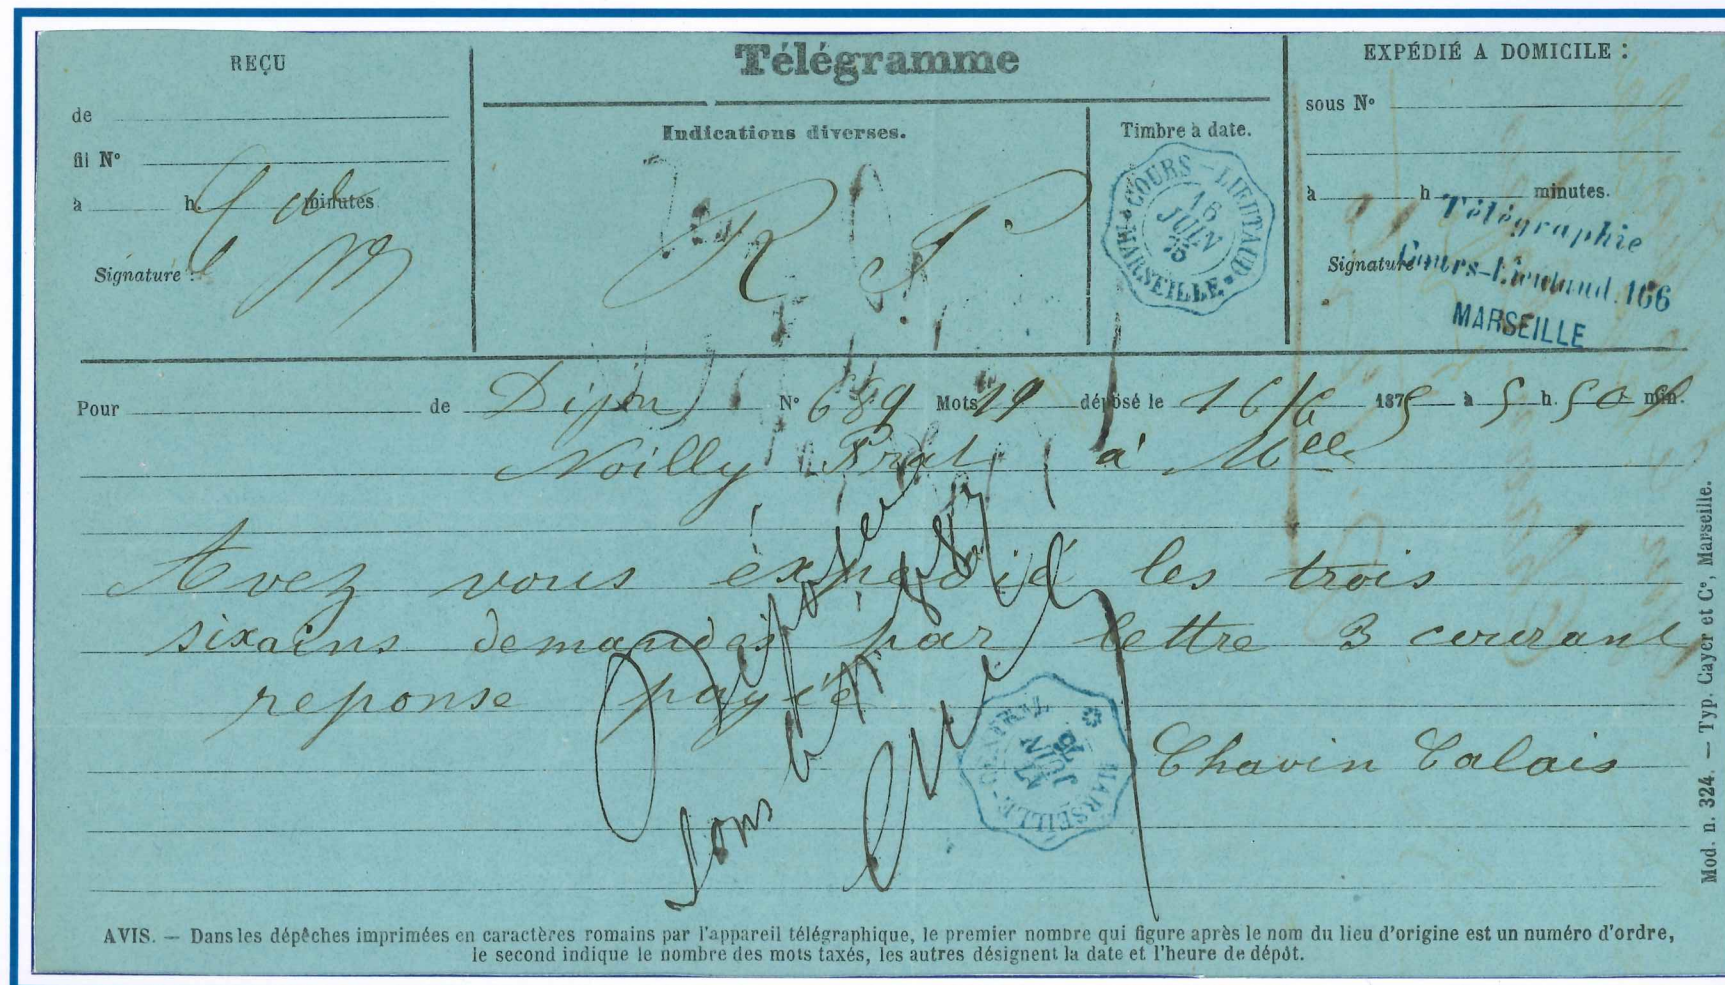 REÇU
de
fil N°
à h. minutes
Signature :
Télégramme
Indications diverses.
R P
Timbre à date.
COURS - LIEUTAUD
16
JUIN
75
MARSEILLE
EXPÉDIÉ A DOMICILE :
sous N°
à h minutes.
Signature
Télégraphie
Cours-Lieutaud.166
MARSEILLE
Pour de Dijon N° 689 Mots 19 déposé le 16/6 1875 à 5 h. 50 min.
Noilly Prat à Mlle
Avez vous expédié les trois
sixains demandés par lettre 3 courant
reponse payée
Chavin Calais
Déposer
sous
MARSEILLE - CENTRAL
JUIN
75
Mod. n. 324. — Typ. Cayer et Cᵉ, Marseille.
AVIS. — Dans les dépêches imprimées en caractères romains par l'appareil télégraphique, le premier nombre qui figure après le nom du lieu d'origine est un numéro d'ordre,
le second indique le nombre des mots taxés, les autres désignent la date et l'heure de dépôt.